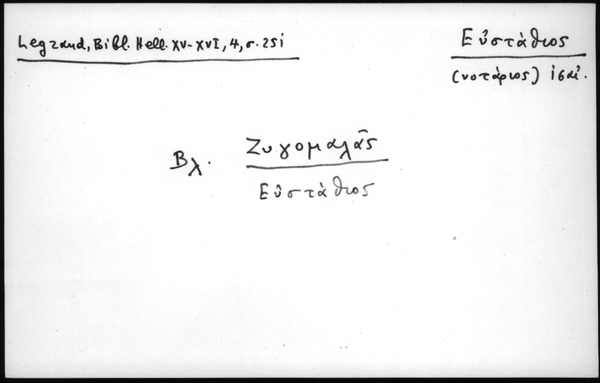 Legrand, Bibl. Hell. XV-XVI, 4, σ. 251
Εὐστάθιος
(νοτάριος) ις αἰ.
Βλ. Ζυγομαλᾶς
Εὐστάθιος